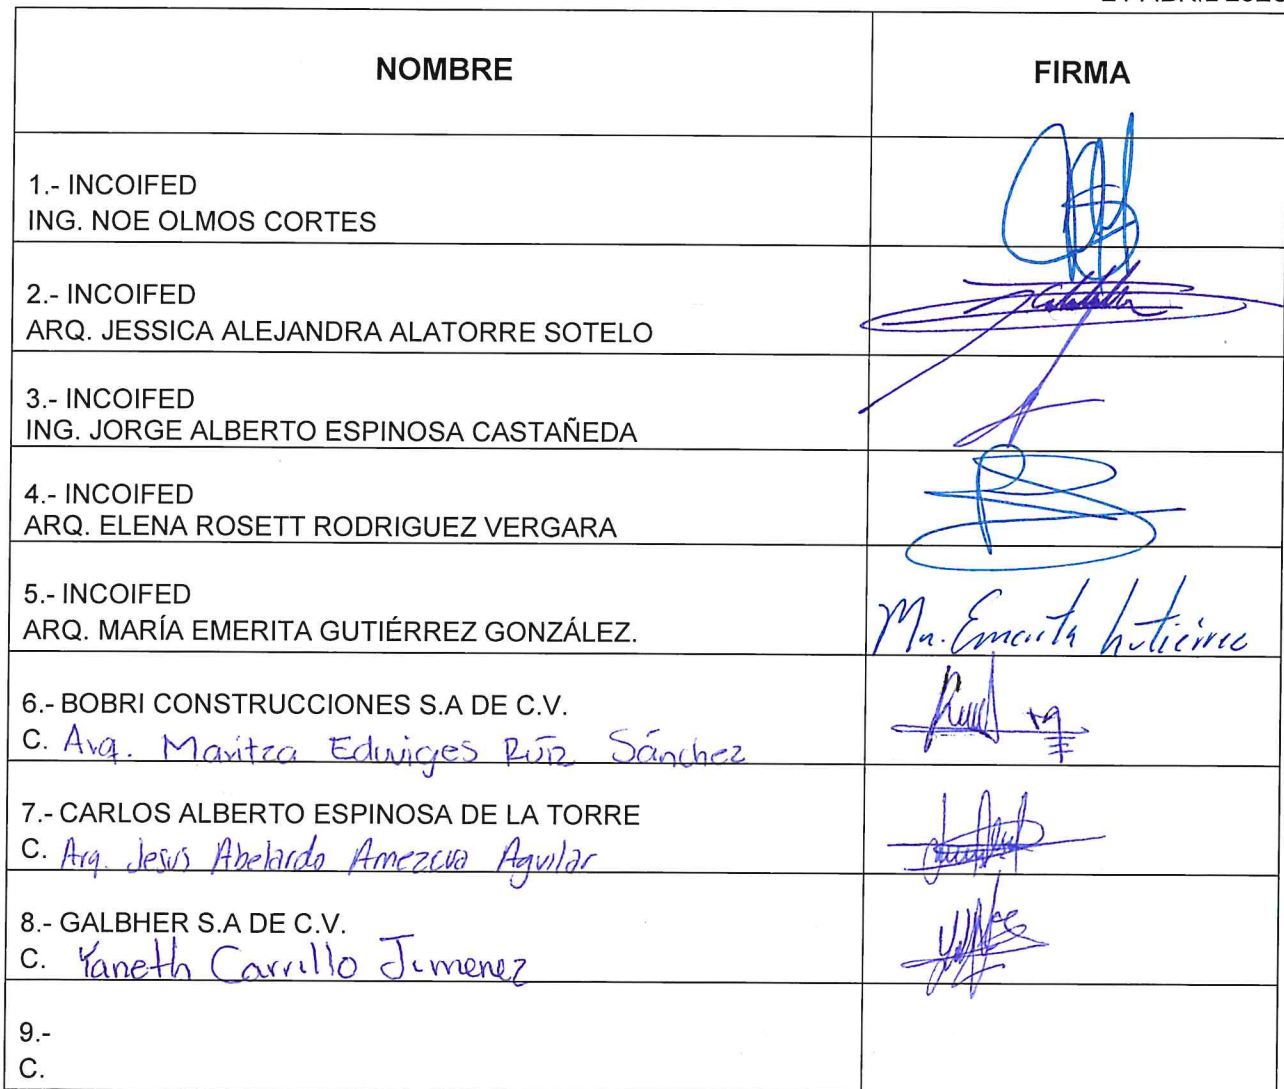 NOMBRE
FIRMA
1.- INCOIFED
ING. NOE OLMOS CORTES
2.- INCOIFED
ARQ. JESSICA ALEJANDRA ALATORRE SOTELO
3.- INCOIFED
ING. JORGE ALBERTO ESPINOSA CASTAÑEDA
4.- INCOIFED
ARQ. ELENA ROSETT RODRIGUEZ VERGARA
5.- INCOIFED
ARQ. MARÍA EMERITA GUTIÉRREZ GONZÁLEZ.
Ma. Emerita Gutiérrez
6.- BOBRI CONSTRUCCIONES S.A DE C.V.
C. Arq. Maritza Eduviges Ruíz Sánchez
7.- CARLOS ALBERTO ESPINOSA DE LA TORRE
C. Arq. Jesus Abelardo Amezcua Aguilar
8.- GALBHER S.A DE C.V.
C. Yaneth Carrillo Jimenez
9.-
C.